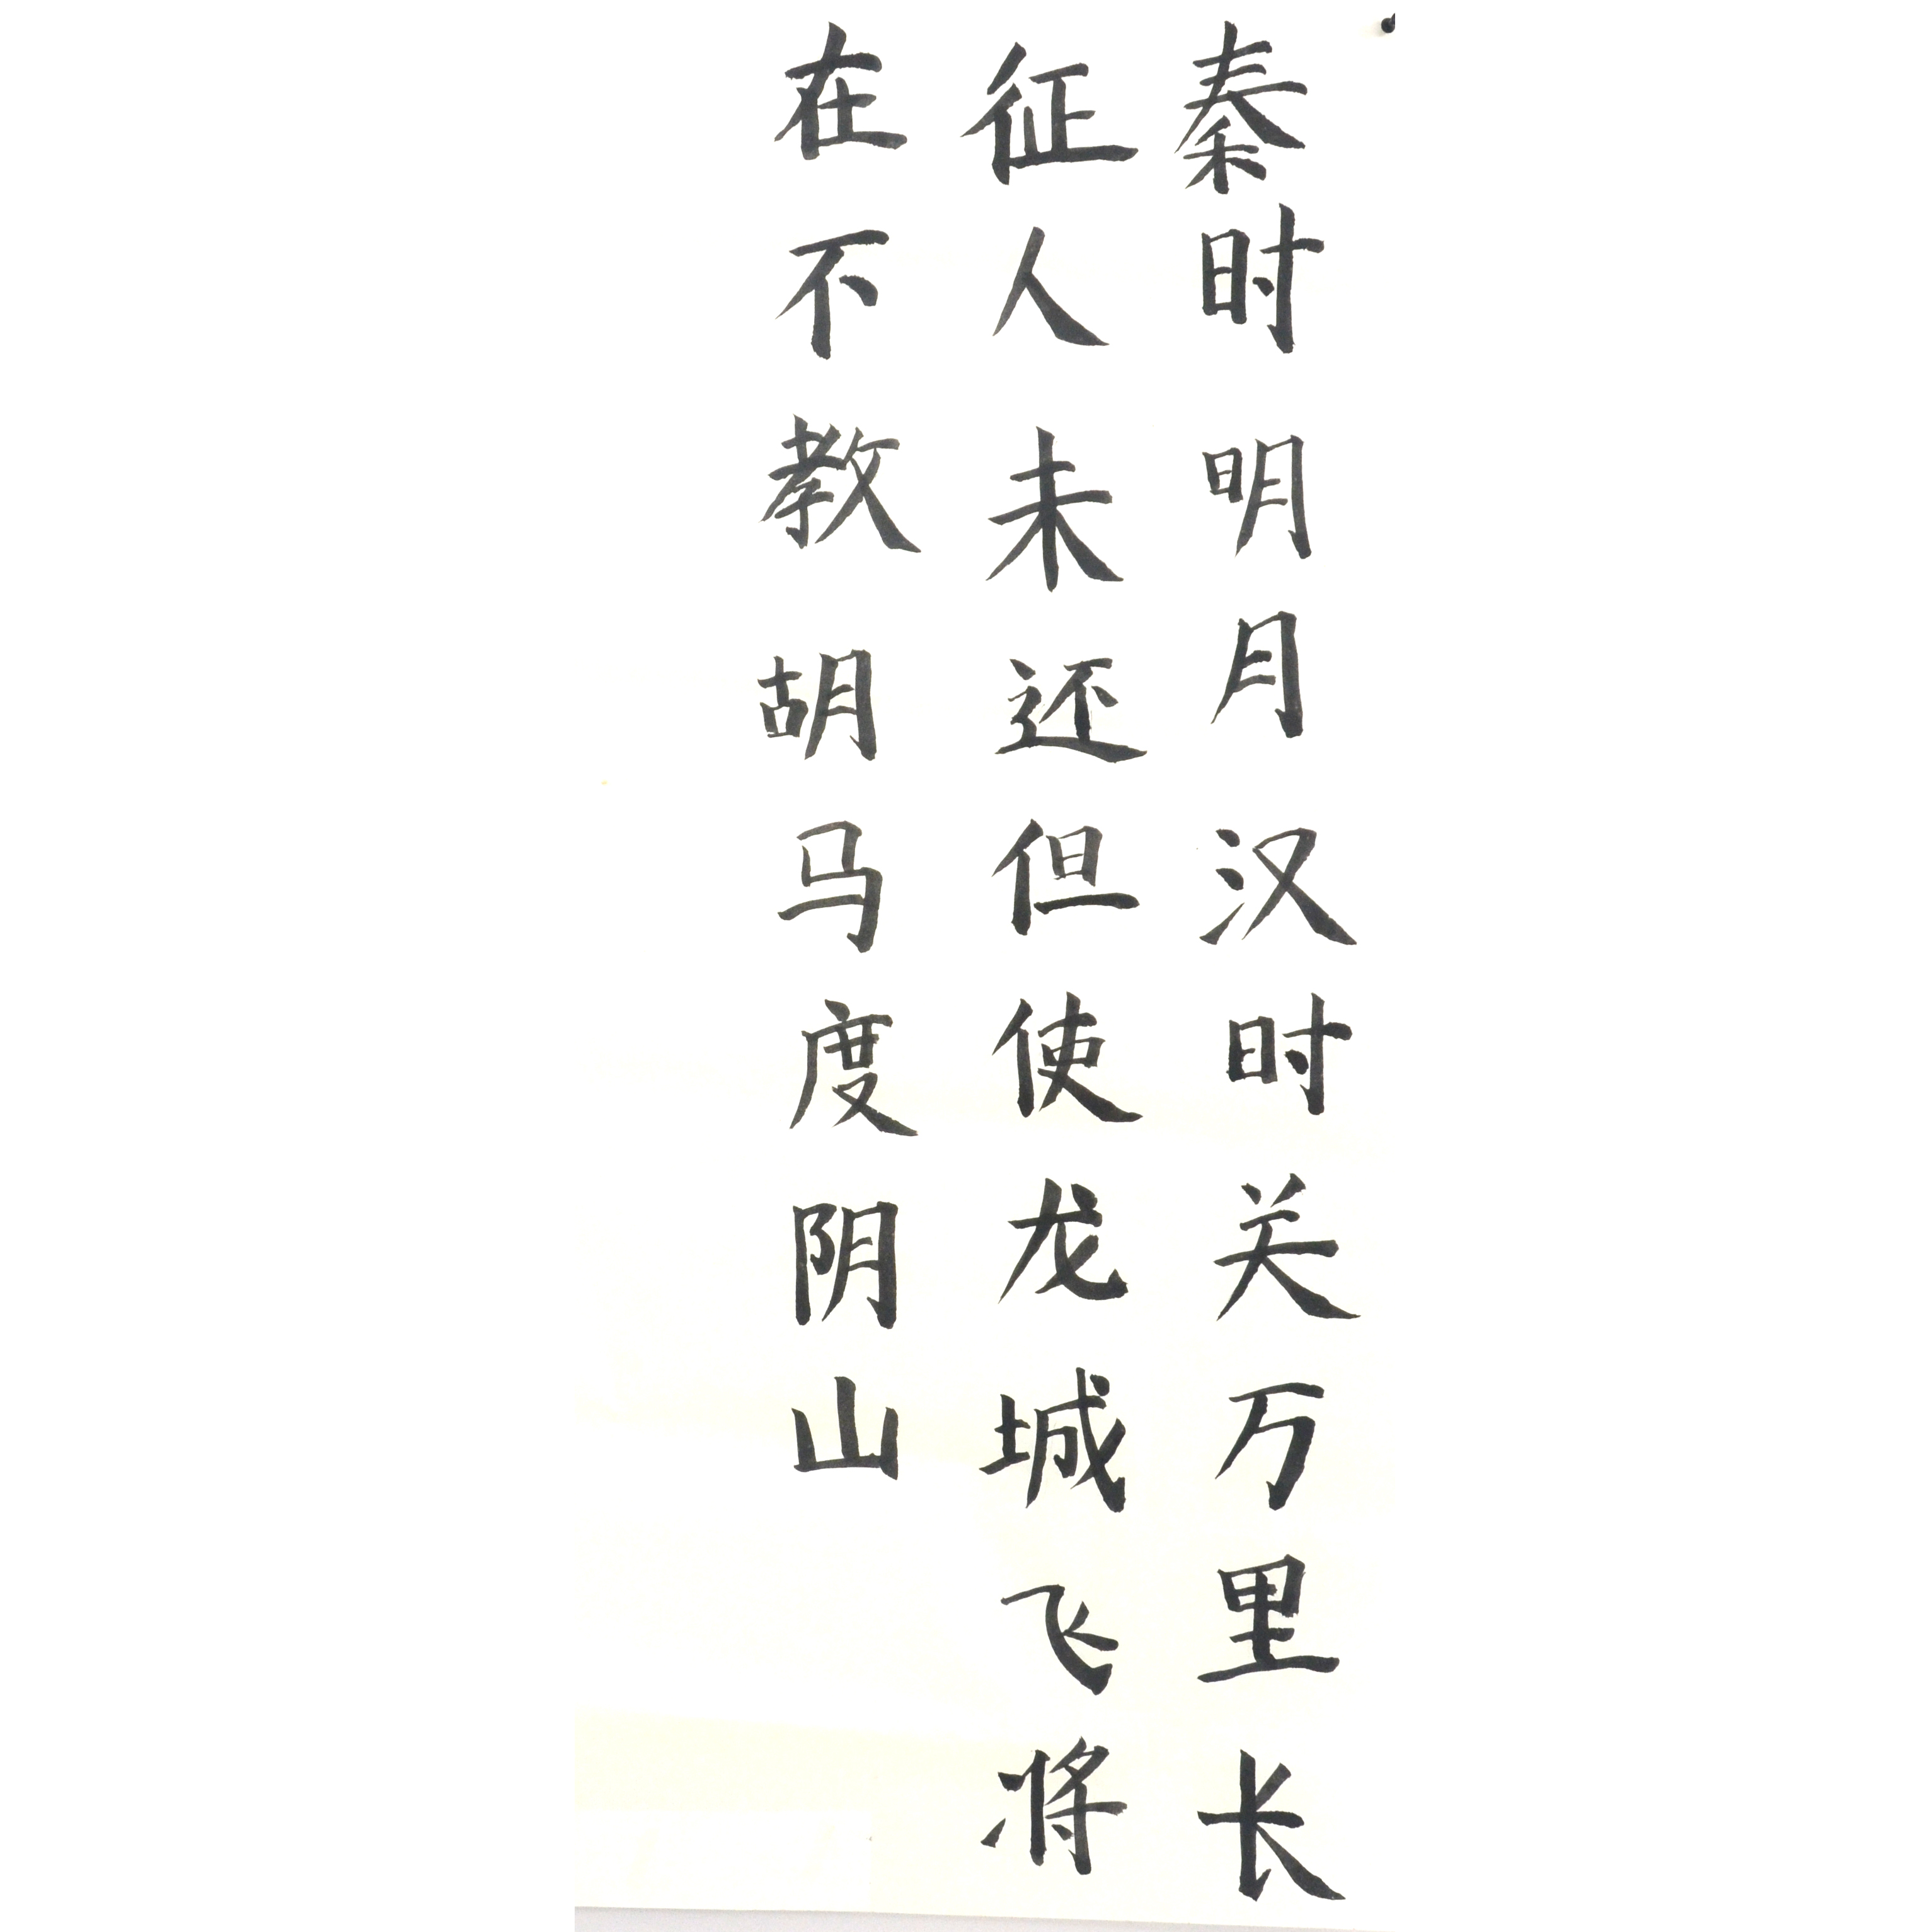 秦时明月汉时关万里长
征人未还但使龙城飞将
在不教胡马度阴山